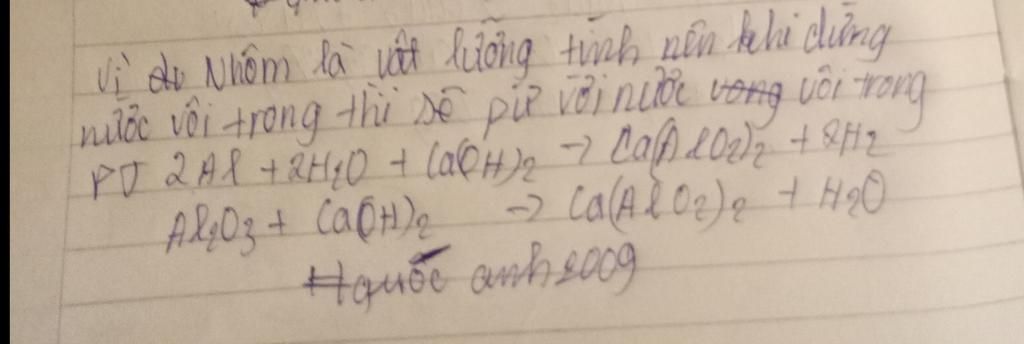 Vì do Nhôm là vât lưỡng tính nên khi dùng
nước vôi trong thì sẽ pứ với nước vong vôi trong
PT 2Al + 2H2O + Ca(OH)2 → Ca(AlO2)2 + 2H2
Al2O3 + Ca(OH)2 → Ca(AlO2)2 + H2O
H quốc anh 2009